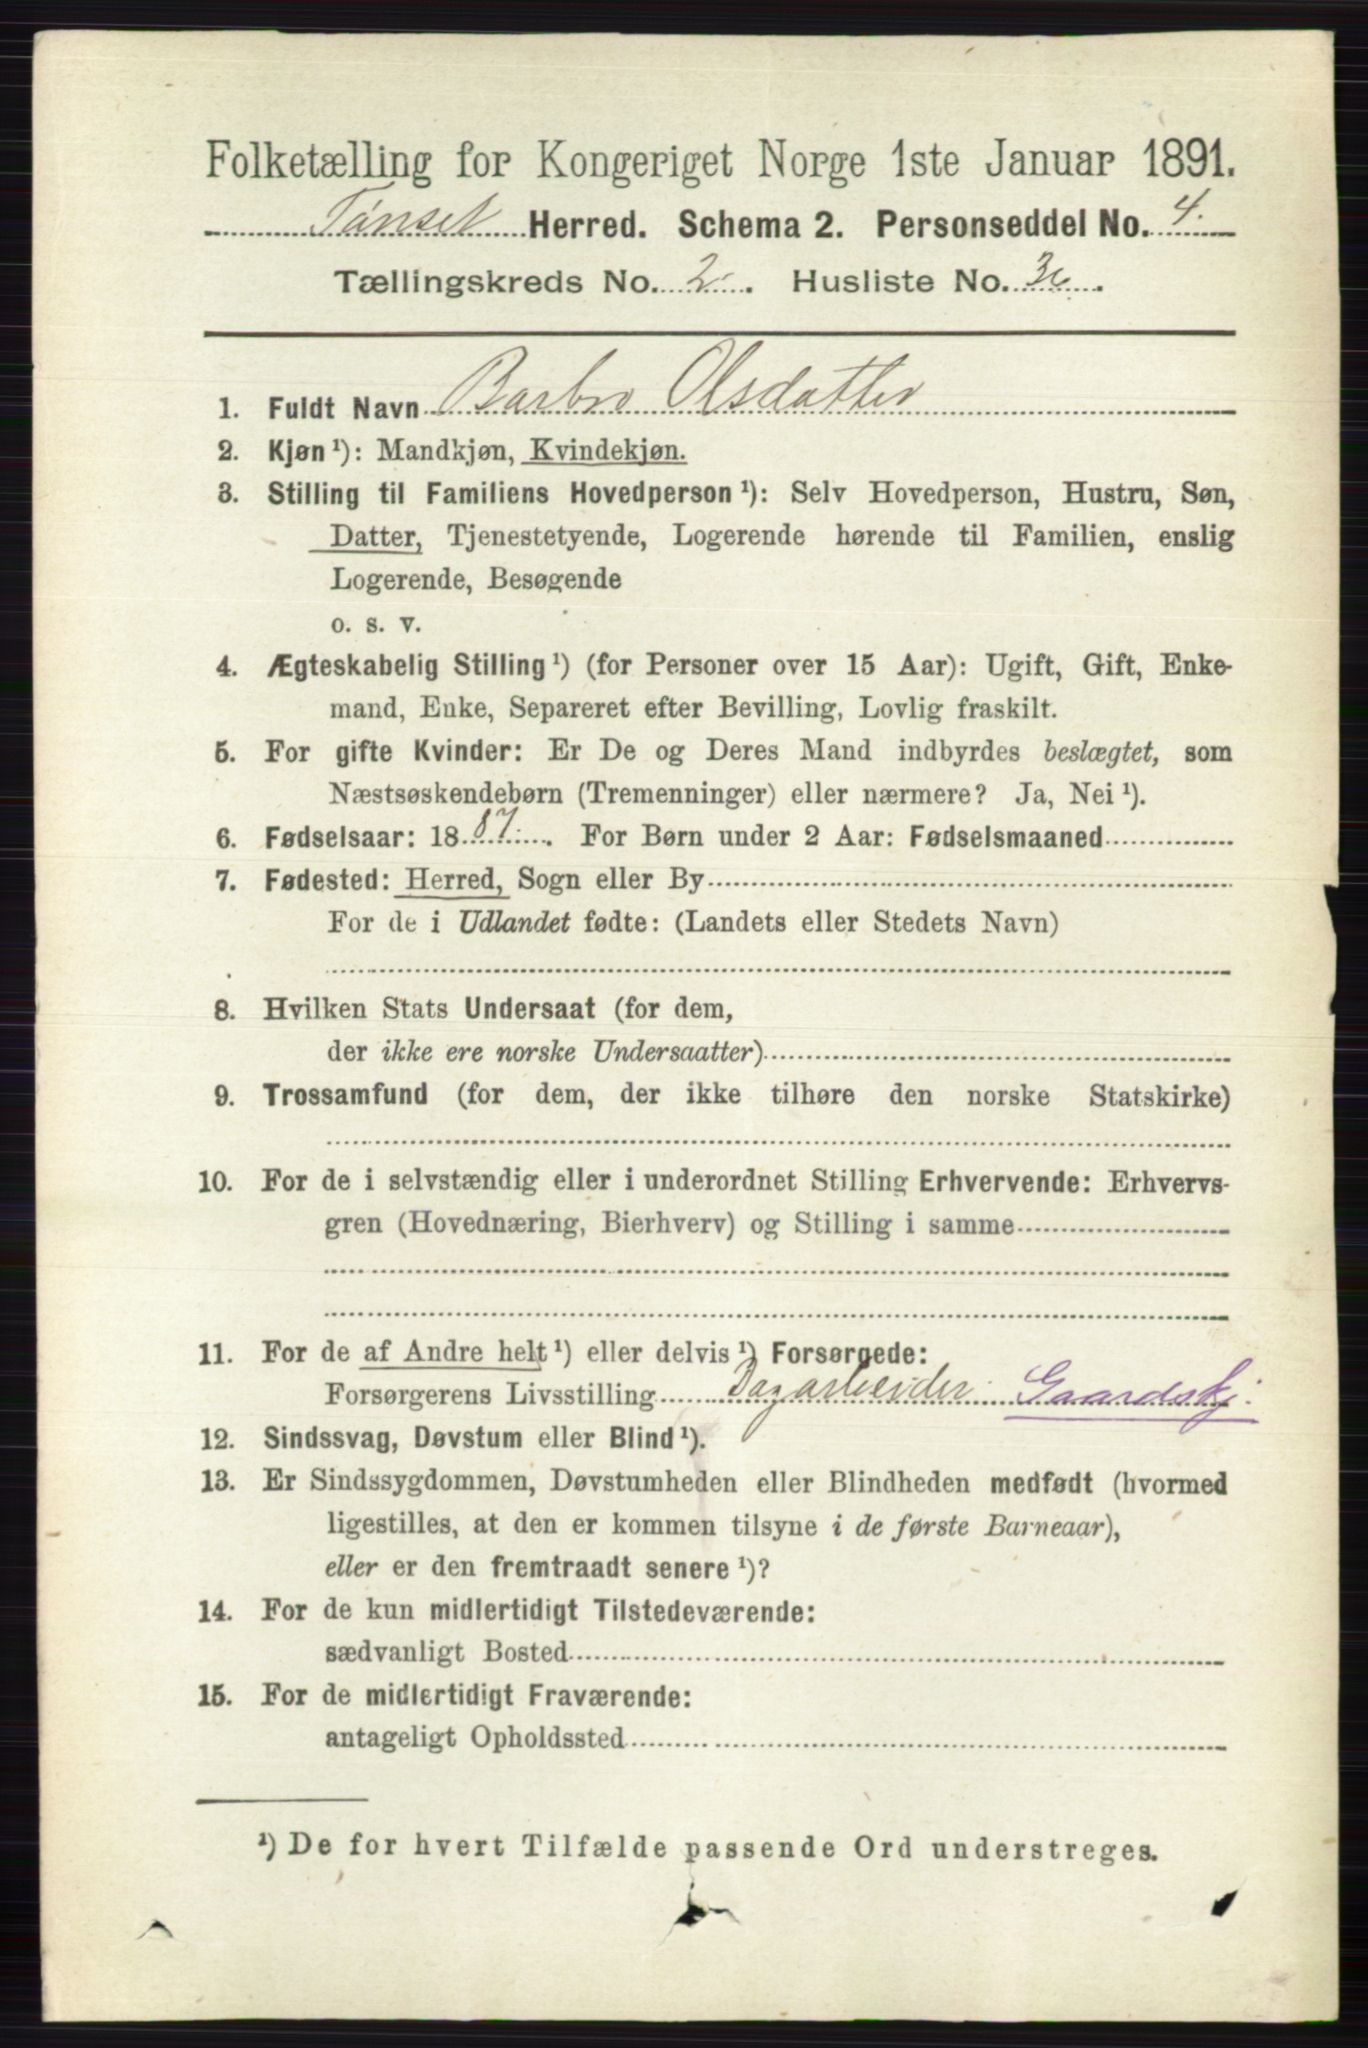 Folketælling for Kongeriget Norge 1ste Januar 1891.
Tønset Herred. Schema 2. Personseddel No. 4.
Tællingskreds No. 2. Husliste No. 36.
1. Fuldt Navn Barbro Olsdatter
2. Kjøn ¹): Mandkjøn, Kvindekjøn.
3. Stilling til Familiens Hovedperson ¹): Selv Hovedperson, Hustru, Søn,
Datter, Tjenestetyende, Logerende hørende til Familien, enslig
Logerende, Besøgende
o. s. v.
4. Ægteskabelig Stilling ¹) (for Personer over 15 Aar): Ugift, Gift, Enke-
mand, Enke, Separeret efter Bevilling, Lovlig fraskilt.
5. For gifte Kvinder: Er De og Deres Mand indbyrdes beslægtet, som
Næstsøskendebørn (Tremenninger) eller nærmere? Ja, Nei ¹).
6. Fødselsaar: 1887. For Børn under 2 Aar: Fødselsmaaned
7. Fødested: Herred, Sogn eller By
For de i Udlandet fødte: (Landets eller Stedets Navn)
8. Hvilken Stats Undersaat (for dem,
der ikke ere norske Undersaatter)
9. Trossamfund (for dem, der ikke tilhøre den norske Statskirke)
10. For de i selvstændig eller i underordnet Stilling Erhvervende: Erhvervs-
gren (Hovednæring, Bierhverv) og Stilling i samme
11. For de af Andre helt ¹) eller delvis ¹) Forsørgede:
Forsørgerens Livsstilling Dagarbeider Gaardskj.
12. Sindssvag, Døvstum eller Blind ¹).
13. Er Sindssygdommen, Døvstumheden eller Blindheden medfødt (hvormed
ligestilles, at den er kommen tilsyne i de første Barneaar),
eller er den fremtraadt senere ¹)?
14. For de kun midlertidigt Tilstedeværende:
sædvanligt Bosted
15. For de midlertidigt Fraværende:
antageligt Opholdssted
¹) De for hvert Tilfælde passende Ord understreges.